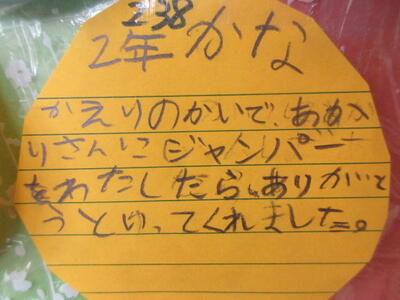 238
2年 かな
かえりのかいで、あかり
さんにジャンパー
をわたしたら、ありがと
うといってくれました。